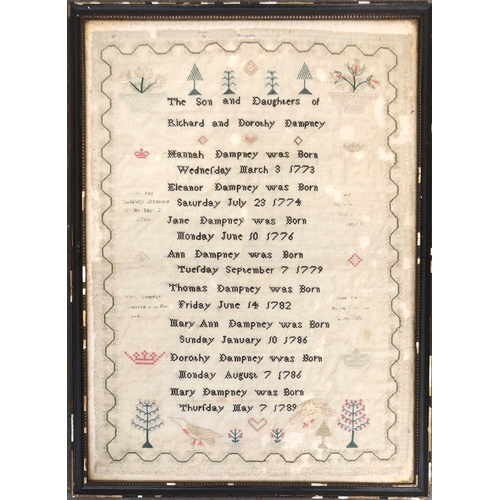 The Son and Daughters of
Richard and Dorothy Dampney
Hannah Dampney was Born
Wednesday March 3 1773
Eleanor Dampney was Born
Saturday July 23 1774
Jane Dampney was Born
Monday June 10 1776
Ann Dampney was Born
Tuesday September 7 1779
Thomas Dampney was Born
Friday June 14 1782
Mary Ann Dampney was Born
Sunday January 10 1786
Dorothy Dampney was Born
Monday August 7 1786
Mary Dampney was Born
Thursday May 7 1789